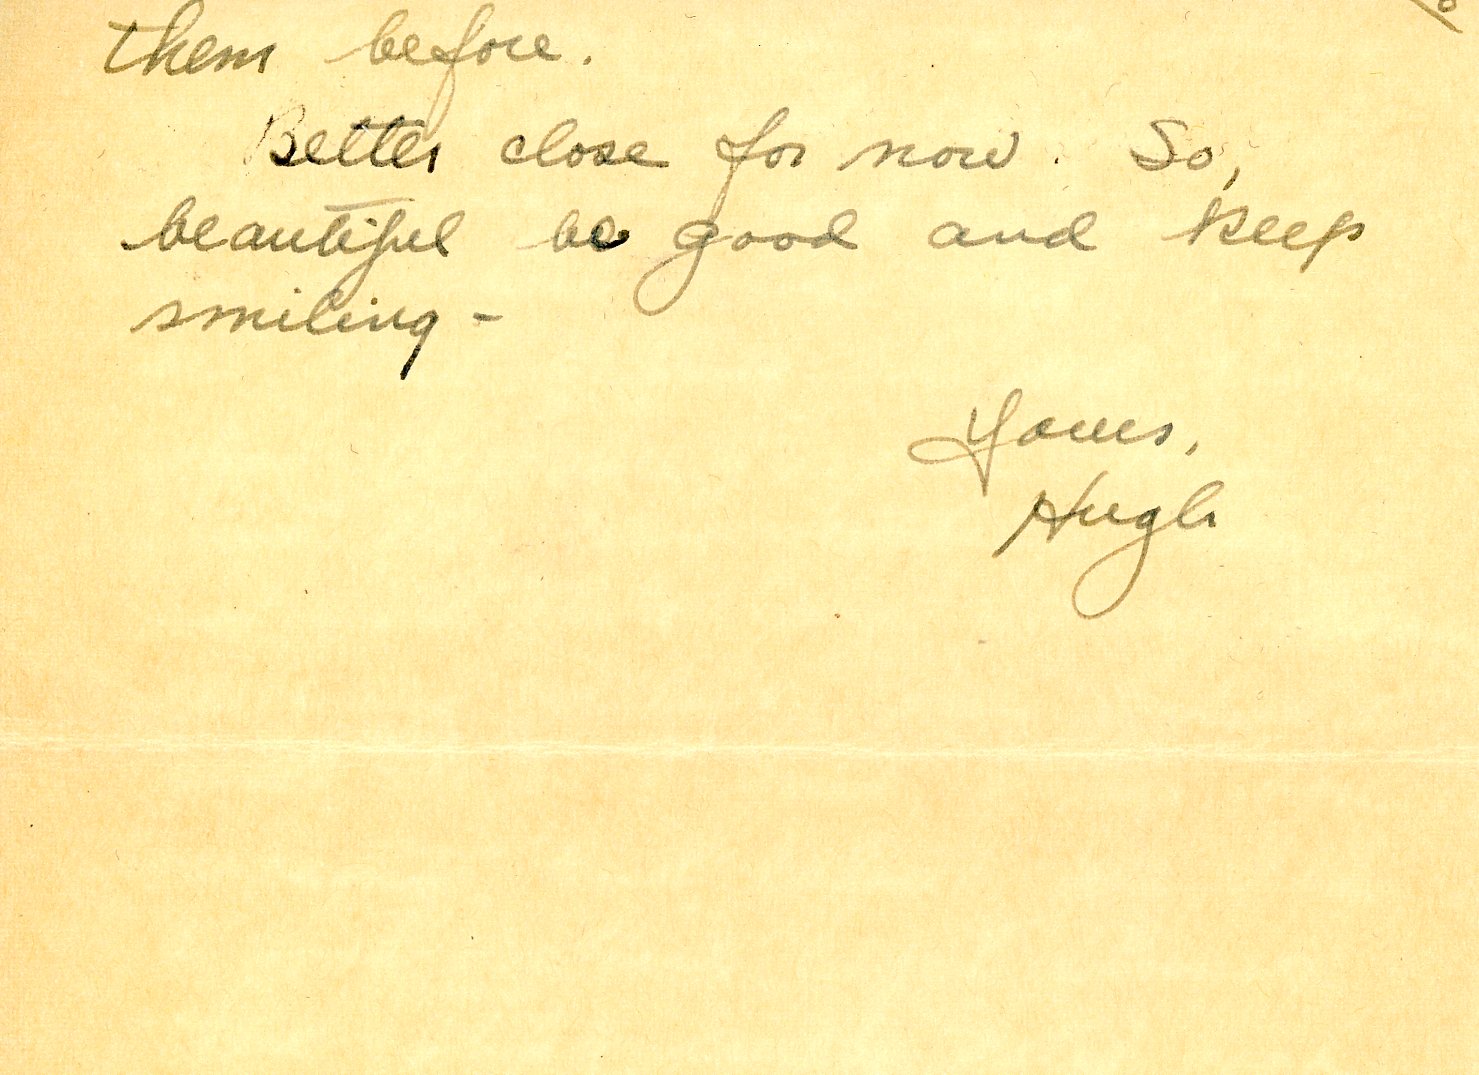 them before.
Better close for now. So,
beautiful be good and keep
smiling -
Yours,
Hugh